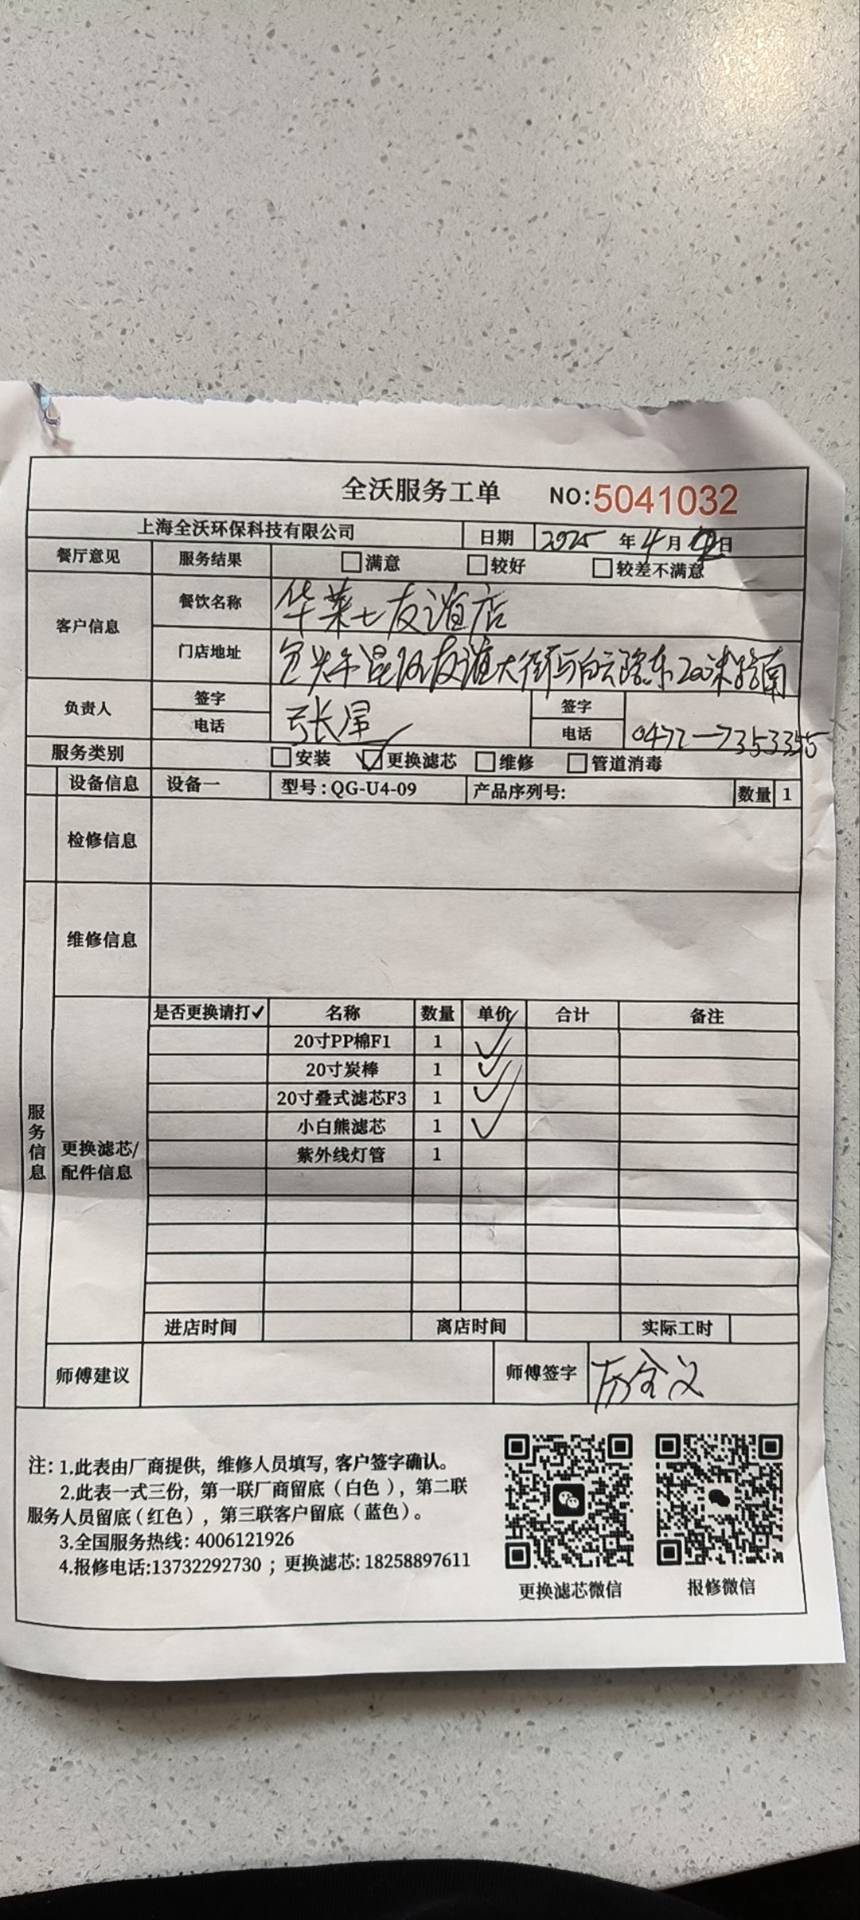 全沃服务工单 NO:5041032
上海全沃环保科技有限公司 日期 2025 年 4 月 日
餐厅意见 服务结果 满意 较好 较差不满意
客户信息 餐饮名称 华莱士友谊店
门店地址 包头市昆区友谊大街与白云路东200米路南
负责人 签字 张 签字
电话 电话 0472-7353355
服务类别 安装 更换滤芯 维修 管道消毒
设备信息 设备一 型号:QG-U4-09 产品序列号: 数量 1
检修信息
维修信息
服务信息
更换滤芯/配件信息
是否更换请打✓ 名称 数量 单价 合计 备注
20寸PP棉F1 1 ✓
20寸炭棒 1 ✓
20寸叠式滤芯F3 1 ✓
小白熊滤芯 1 ✓
紫外线灯管 1
进店时间 离店时间 实际工时
师傅建议 师傅签字
注: 1.此表由厂商提供, 维修人员填写, 客户签字确认。
2.此表一式三份, 第一联厂商留底 (白色), 第二联
服务人员留底 (红色), 第三联客户留底 (蓝色)。
3.全国服务热线: 4006121926
4.报修电话:13732292730 ; 更换滤芯: 18258897611
更换滤芯微信 报修微信